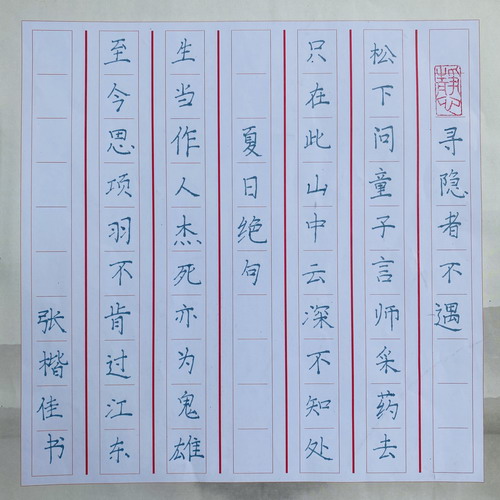 静心
寻隐者不遇
松下问童子言师采药去
只在此山中云深不知处
夏日绝句
生当作人杰死亦为鬼雄
至今思项羽不肯过江东
张楷佳书